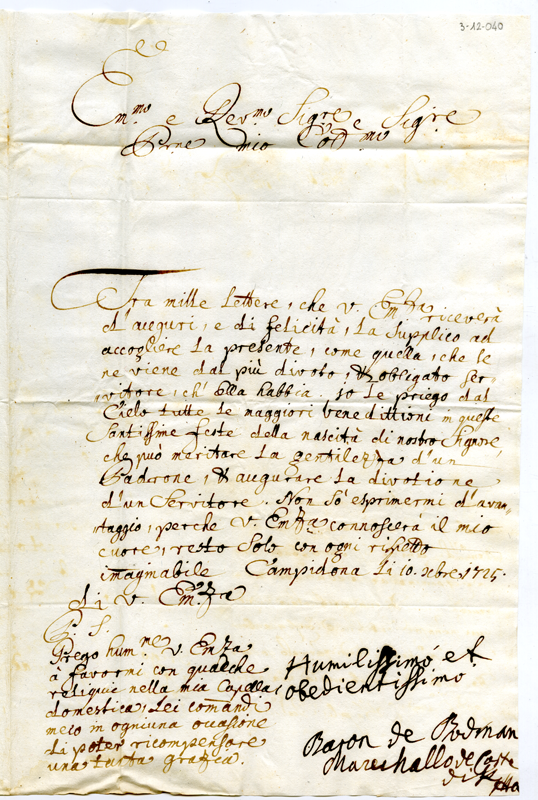 3-12-040
Em.mo e Rev.mo Sig.re e Sig.re
P.rne mio Col.mo
Tra mille lettere, che V. Em.za riceverà
d'auguri, e di felicità, la supplico ad
accogliere la presente, come quella, che le
ne viene dal più divoto, & obligato ser-
vitore, ch' ella habbia. Io le priego dal
Cielo tutte le maggiori benedittioni in queste
Santissime feste della nascità di nostro Signore,
che può maritare la gentilezza d'un
Padrone, & augurare la divotione
d'un Servitore. Non sò esprimermi d'avan-
taggio, perche V. Em.za connoscerà il mio
cuore, resto solo con ogni rispetto
imaginabile Campidona li 10. xbre 1725.
di V. Em.za
P. S.
Prego hum.ne V. Em.za
à favormi con qualche
relique nella mia Capella
domestica, Lei comandi
meco in ogniuna occasione
di poter ricompensare
una tanta grazia.
Humilissimo et
obedientissimo
Baron de Bodman
Mareshallo de Corte